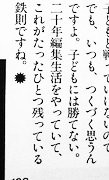 子どもと戦っていけないので
でも、いつも、つくづく思うん
ですよ。子どもには勝てない。
二十年編集生活をやっていて、
これがたったひとつ残っている
鉄則ですね。